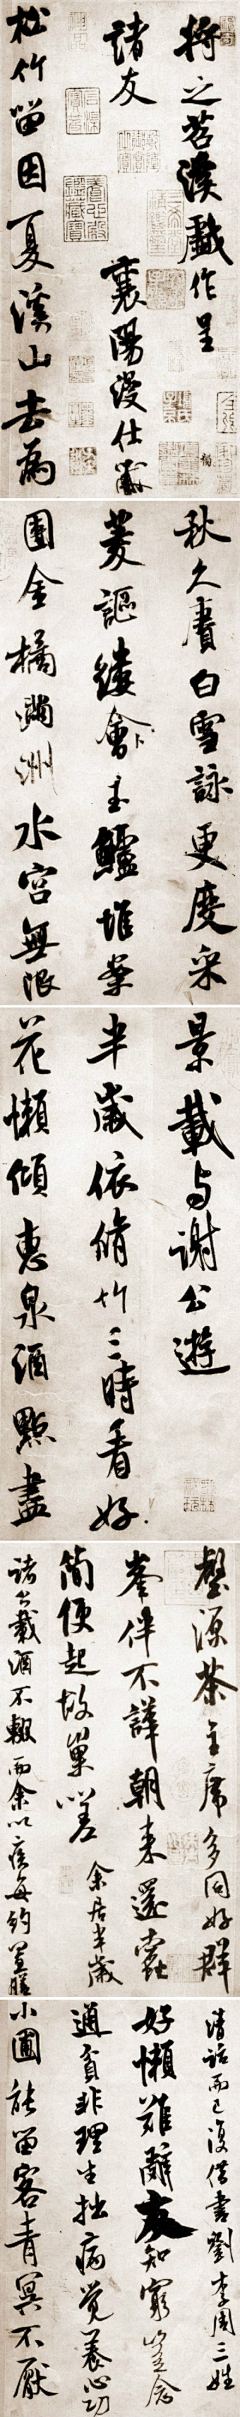 將之苕溪戲作呈
諸友　襄陽漫仕黻
松竹留因夏溪山去為
秋久賡白雪詠更度采
菱謳縷會玉鱸堆案
團金橘滿洲水宮無限
景載与謝公遊
半歲依脩竹三時看好
花懶傾惠泉酒點盡
壑源茶主席多同好群
峯伴不譁朝來還蠹
簡便起故巢嗟　余居半歲
諸公載酒不輟而余以疾每約置膳
清話而已復借書劉李周三姓
好懶難辭友知窮豈念
通貧非理生拙病覺養心功
小圃能留客青冥不厭